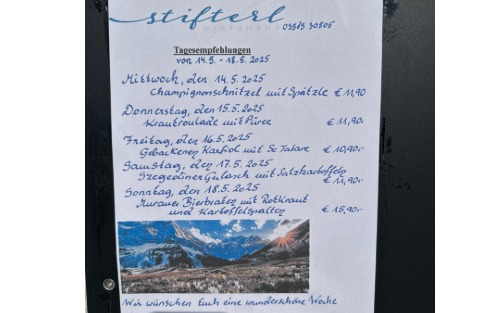 stifterl
WIRTSHAUS
03585 30805
Tagesempfehlungen
von 14.5. - 18.5. 2025
Mittwoch, den 14.5.2025
Champignonschnitzel mit Spätzle € 11,90
Donnerstag, den 15.5.2025
Krautroulade mit Püree € 11,90.-
Freitag, den 16.5.2025
Gebackenen Karfiol mit Sc Tatare € 10,90.-
Samstag, den 17.5.2025
Szegediner Gulasch mit Salzkartoffeln
€ 11,90.-
Sonntag, den 18.5.2025
Murauer Bierbraten mit Rotkraut
und Kartoffelspalten € 15,90.-
Wir wünschen Euch eine wunderschöne Woche